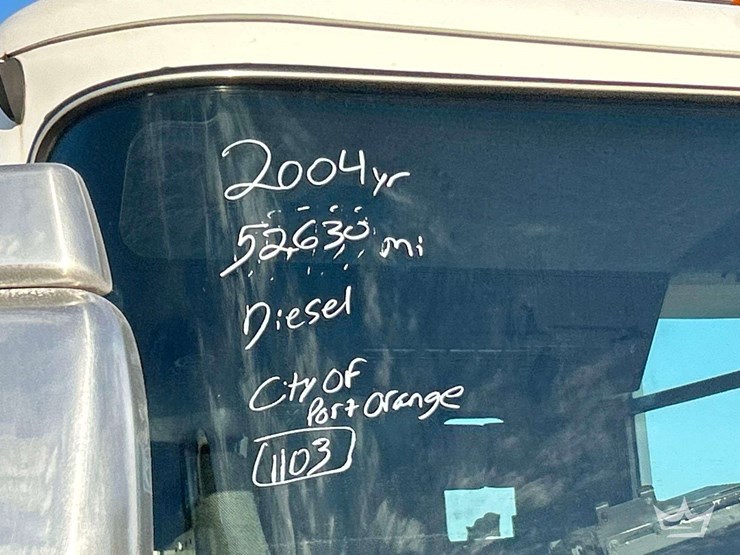 2004 yr
52,630 mi
Diesel
City Of
Port Orange
1103